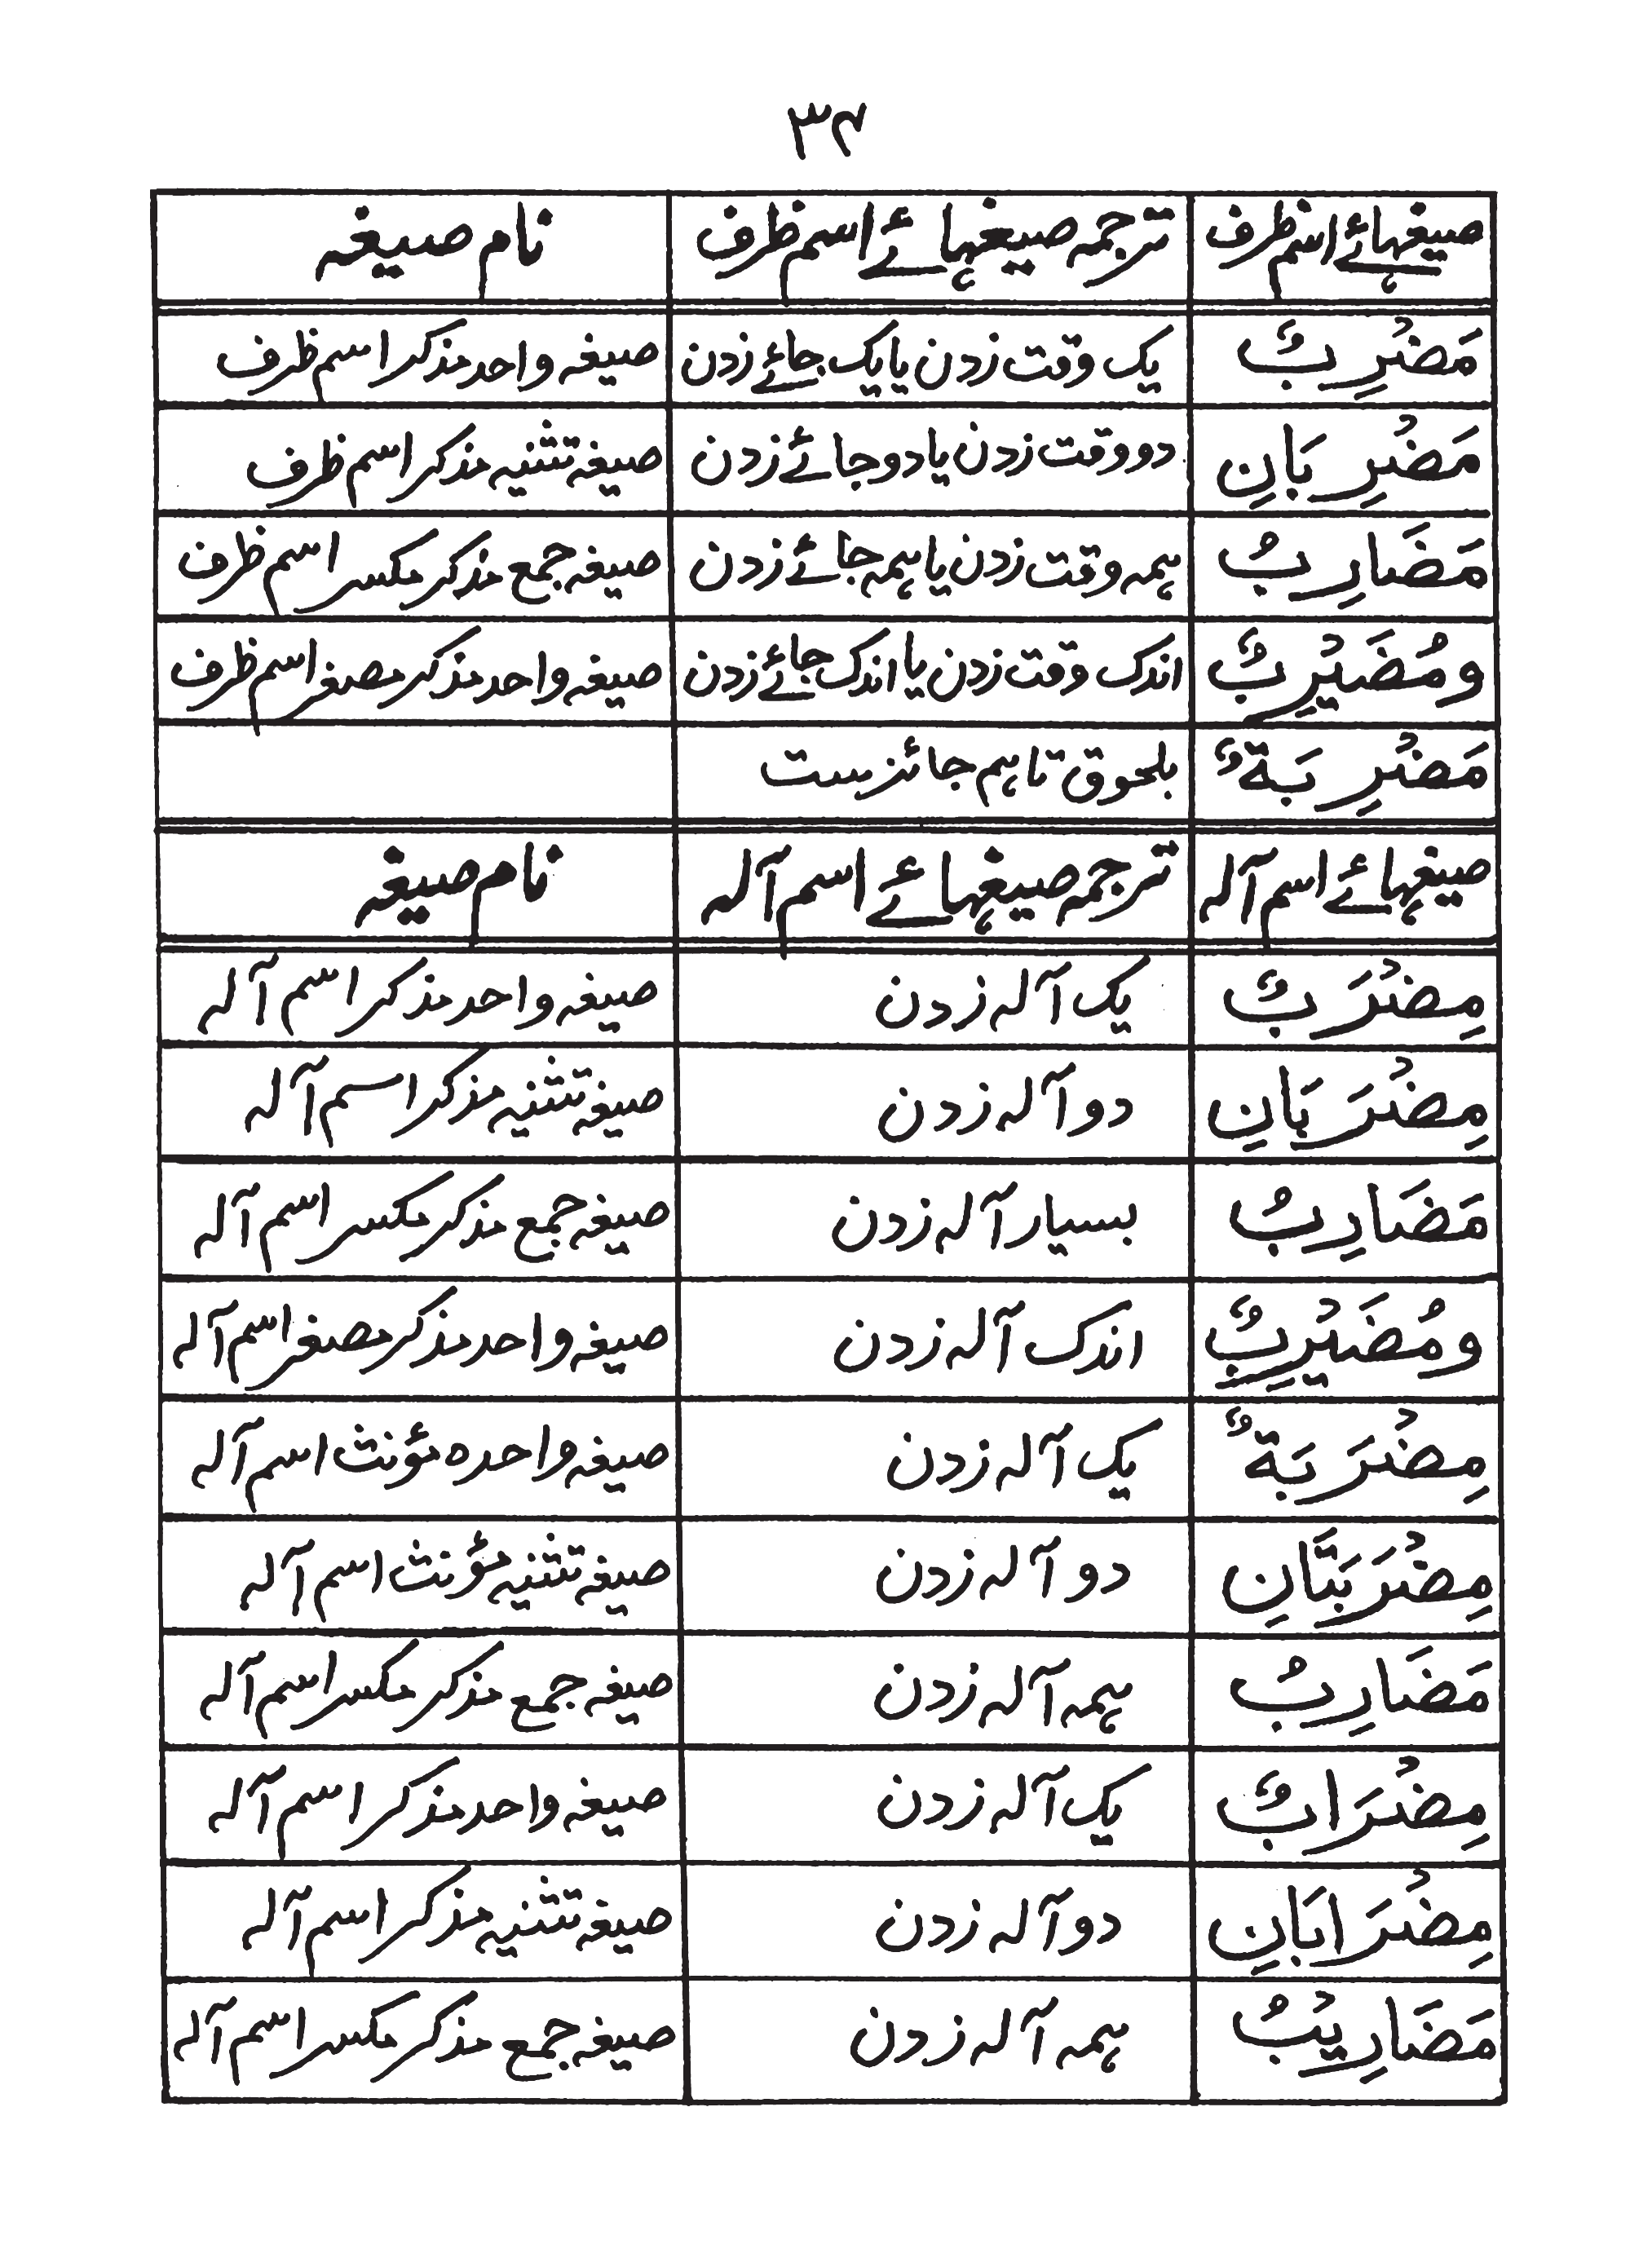 ۳۴
صیغہائے اسم ظرف ترجمہ صیغہائے اسم ظرف نام صیغہ
مَضْرِبٌ یک وقت زدن یا یک جائے زدن صیغہ واحد مذکر اسم ظرف
مَضْرِبَانِ دو وقت زدن یا دو جائے زدن صیغہ تثنیہ مذکر اسم ظرف
مَضَارِبُ ہمہ وقت زدن یا ہمہ جائے زدن صیغہ جمع مذکر مکسر اسم ظرف
ومُضَيْرِبٌ اندک وقت زدن یا اندک جائے زدن صیغہ واحد مذکر مصغر اسم ظرف
مَضْرِبَةٌ بلحوق تا ہم جائز ست
صیغہائے اسم آلہ ترجمہ صیغہائے اسم آلہ نام صیغہ
مِضْرَبٌ یک آلہ زدن صیغہ واحد مذکر اسم آلہ
مِضْرَبَانِ دو آلہ زدن صیغہ تثنیہ مذکر اسم آلہ
مَضَارِبُ بسیار آلہ زدن صیغہ جمع مذکر مکسر اسم آلہ
ومُضَيْرِبٌ اندک آلہ زدن صیغہ واحد مذکر مصغر اسم آلہ
مِضْرَبَةٌ یک آلہ زدن صیغہ واحدہ مؤنث اسم آلہ
مِضْرَبَتَانِ دو آلہ زدن صیغہ تثنیہ مؤنث اسم آلہ
مَضَارِبُ ہمہ آلہ زدن صیغہ جمع مذکر مکسر اسم آلہ
مِضْرَابٌ یک آلہ زدن صیغہ واحد مذکر اسم آلہ
مِضْرَابَانِ دو آلہ زدن صیغہ تثنیہ مذکر اسم آلہ
مَضَارِيْبُ ہمہ آلہ زدن صیغہ جمع مذکر مکسر اسم آلہ